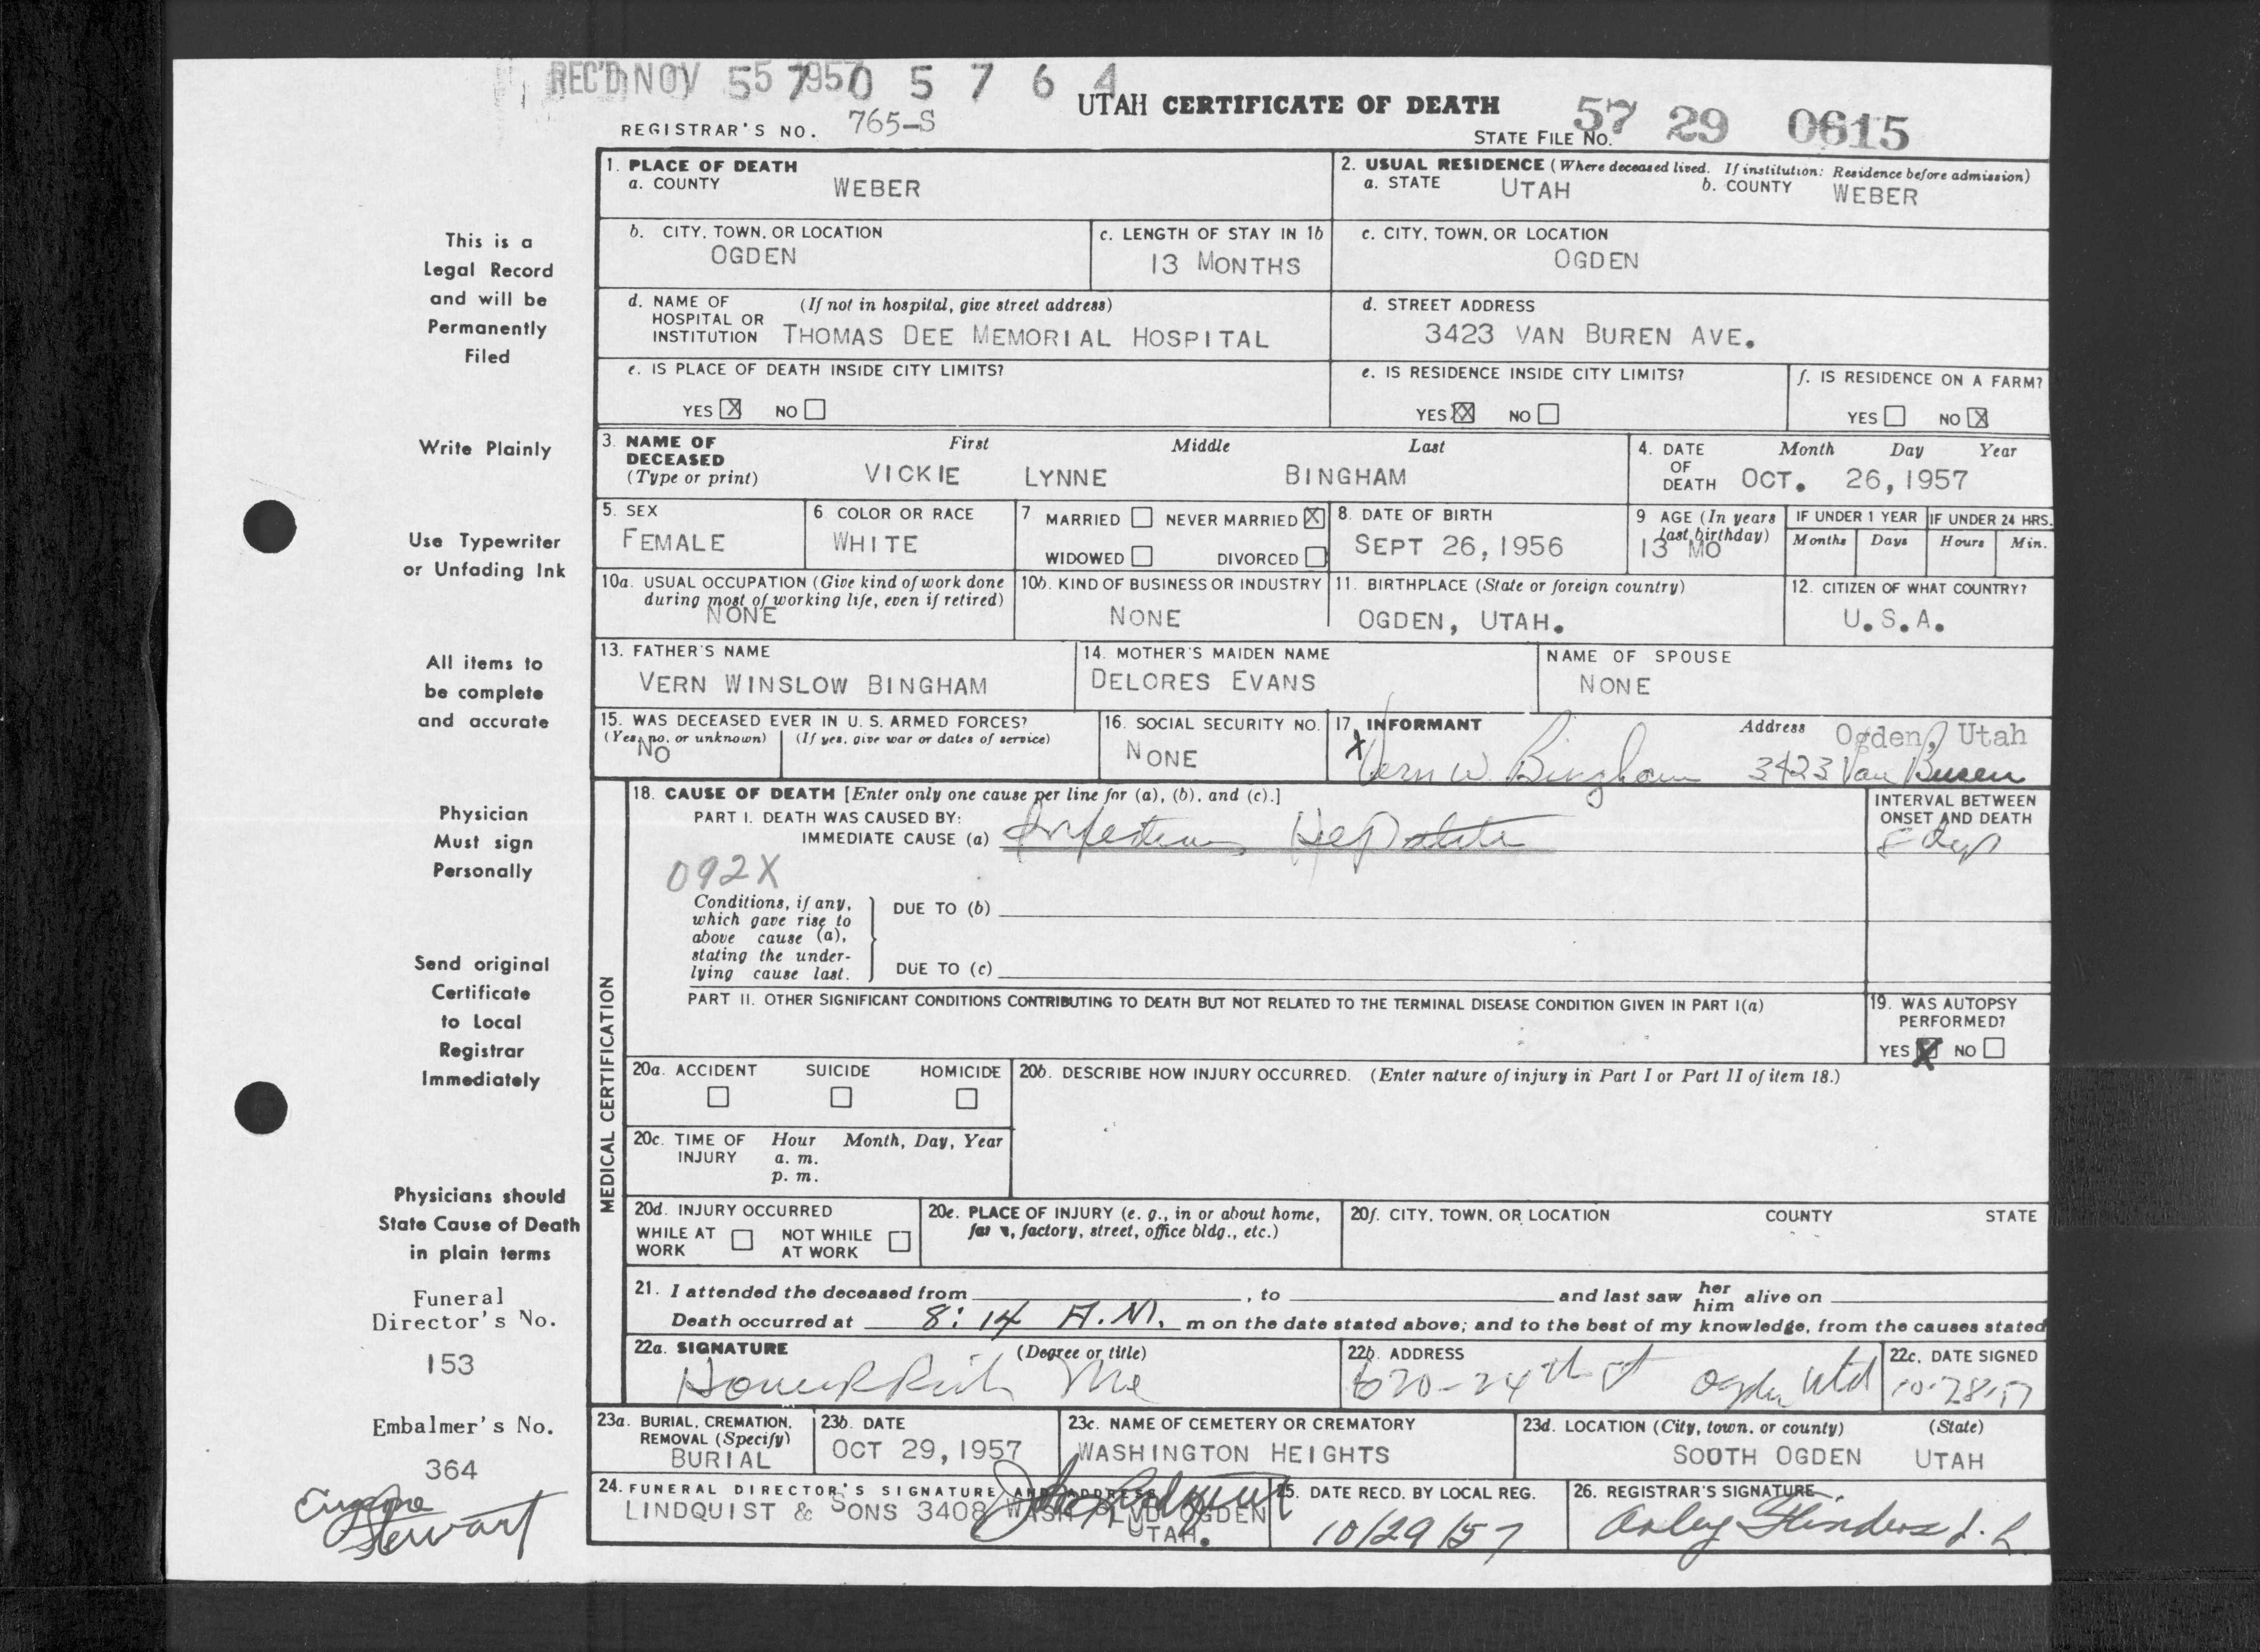 REC'D NOV 5 1957 57 0 5 7 6 4
UTAH CERTIFICATE OF DEATH
REGISTRAR'S NO. 765-S
STATE FILE NO. 57 29 0615
1. PLACE OF DEATH
a. COUNTY WEBER
2. USUAL RESIDENCE (Where deceased lived. If institution: Residence before admission)
a. STATE UTAH b. COUNTY WEBER
b. CITY, TOWN, OR LOCATION
OGDEN
c. LENGTH OF STAY IN 1b
13 MONTHS
c. CITY, TOWN, OR LOCATION
OGDEN
d. NAME OF HOSPITAL OR INSTITUTION (If not in hospital, give street address)
THOMAS DEE MEMORIAL HOSPITAL
d. STREET ADDRESS
3423 VAN BUREN AVE.
e. IS PLACE OF DEATH INSIDE CITY LIMITS?
YES X NO
e. IS RESIDENCE INSIDE CITY LIMITS?
YES X NO
f. IS RESIDENCE ON A FARM?
YES NO X
3. NAME OF DECEASED (Type or print)
First Middle Last
VICKIE LYNNE BINGHAM
4. DATE OF DEATH
Month Day Year
OCT. 26, 1957
5. SEX
FEMALE
6. COLOR OR RACE
WHITE
7 MARRIED NEVER MARRIED X
WIDOWED DIVORCED
8. DATE OF BIRTH
SEPT 26, 1956
9 AGE (In years last birthday)
13 MO
IF UNDER 1 YEAR
Months Days
IF UNDER 24 HRS.
Hours Min.
10a. USUAL OCCUPATION (Give kind of work done during most of working life, even if retired)
NONE
10b. KIND OF BUSINESS OR INDUSTRY
NONE
11. BIRTHPLACE (State or foreign country)
OGDEN, UTAH.
12. CITIZEN OF WHAT COUNTRY?
U.S.A.
13. FATHER'S NAME
VERN WINSLOW BINGHAM
14. MOTHER'S MAIDEN NAME
DELORES EVANS
NAME OF SPOUSE
NONE
15. WAS DECEASED EVER IN U. S. ARMED FORCES?
(Yes, no, or unknown) (If yes, give war or dates of service)
NO
16. SOCIAL SECURITY NO.
NONE
17. INFORMANT Address Ogden, Utah
X Vern W. Bingham 3423 Van Buren
MEDICAL CERTIFICATION
18. CAUSE OF DEATH [Enter only one cause per line for (a), (b), and (c).]
PART I. DEATH WAS CAUSED BY:
IMMEDIATE CAUSE (a) Infectious Hepatitis
INTERVAL BETWEEN ONSET AND DEATH
8 days
092X
Conditions, if any, which gave rise to above cause (a), stating the underlying cause last.
DUE TO (b)
DUE TO (c)
PART II. OTHER SIGNIFICANT CONDITIONS CONTRIBUTING TO DEATH BUT NOT RELATED TO THE TERMINAL DISEASE CONDITION GIVEN IN PART I(a)
19. WAS AUTOPSY PERFORMED?
YES X NO
20a. ACCIDENT SUICIDE HOMICIDE
20b. DESCRIBE HOW INJURY OCCURRED. (Enter nature of injury in Part I or Part II of item 18.)
20c. TIME OF INJURY Hour Month, Day, Year
a. m.
p. m.
20d. INJURY OCCURRED
WHILE AT WORK NOT WHILE AT WORK
20e. PLACE OF INJURY (e. g., in or about home, farm, factory, street, office bldg., etc.)
20f. CITY, TOWN, OR LOCATION COUNTY STATE
21. I attended the deceased from , to and last saw her him alive on
Death occurred at 8:14 A.M. m on the date stated above; and to the best of my knowledge, from the causes stated
22a. SIGNATURE (Degree or title)
22b. ADDRESS
620-24th St Ogden Utah
22c. DATE SIGNED
10-28-57
23a. BURIAL, CREMATION, REMOVAL (Specify)
BURIAL
23b. DATE
OCT 29, 1957
23c. NAME OF CEMETERY OR CREMATORY
WASHINGTON HEIGHTS
23d. LOCATION (City, town, or county) (State)
SOUTH OGDEN UTAH
24. FUNERAL DIRECTOR'S SIGNATURE AND ADDRESS
LINDQUIST & SONS 3408 WASH BLVD OGDEN
UTAH.
25. DATE RECD. BY LOCAL REG.
10/29/57
26. REGISTRAR'S SIGNATURE
This is a
Legal Record
and will be
Permanently
Filed
Write Plainly
Use Typewriter
or Unfading Ink
All items to
be complete
and accurate
Physician
Must sign
Personally
Send original
Certificate
to Local
Registrar
Immediately
Physicians should
State Cause of Death
in plain terms
Funeral
Director's No.
153
Embalmer's No.
364
Eugene
Stewart